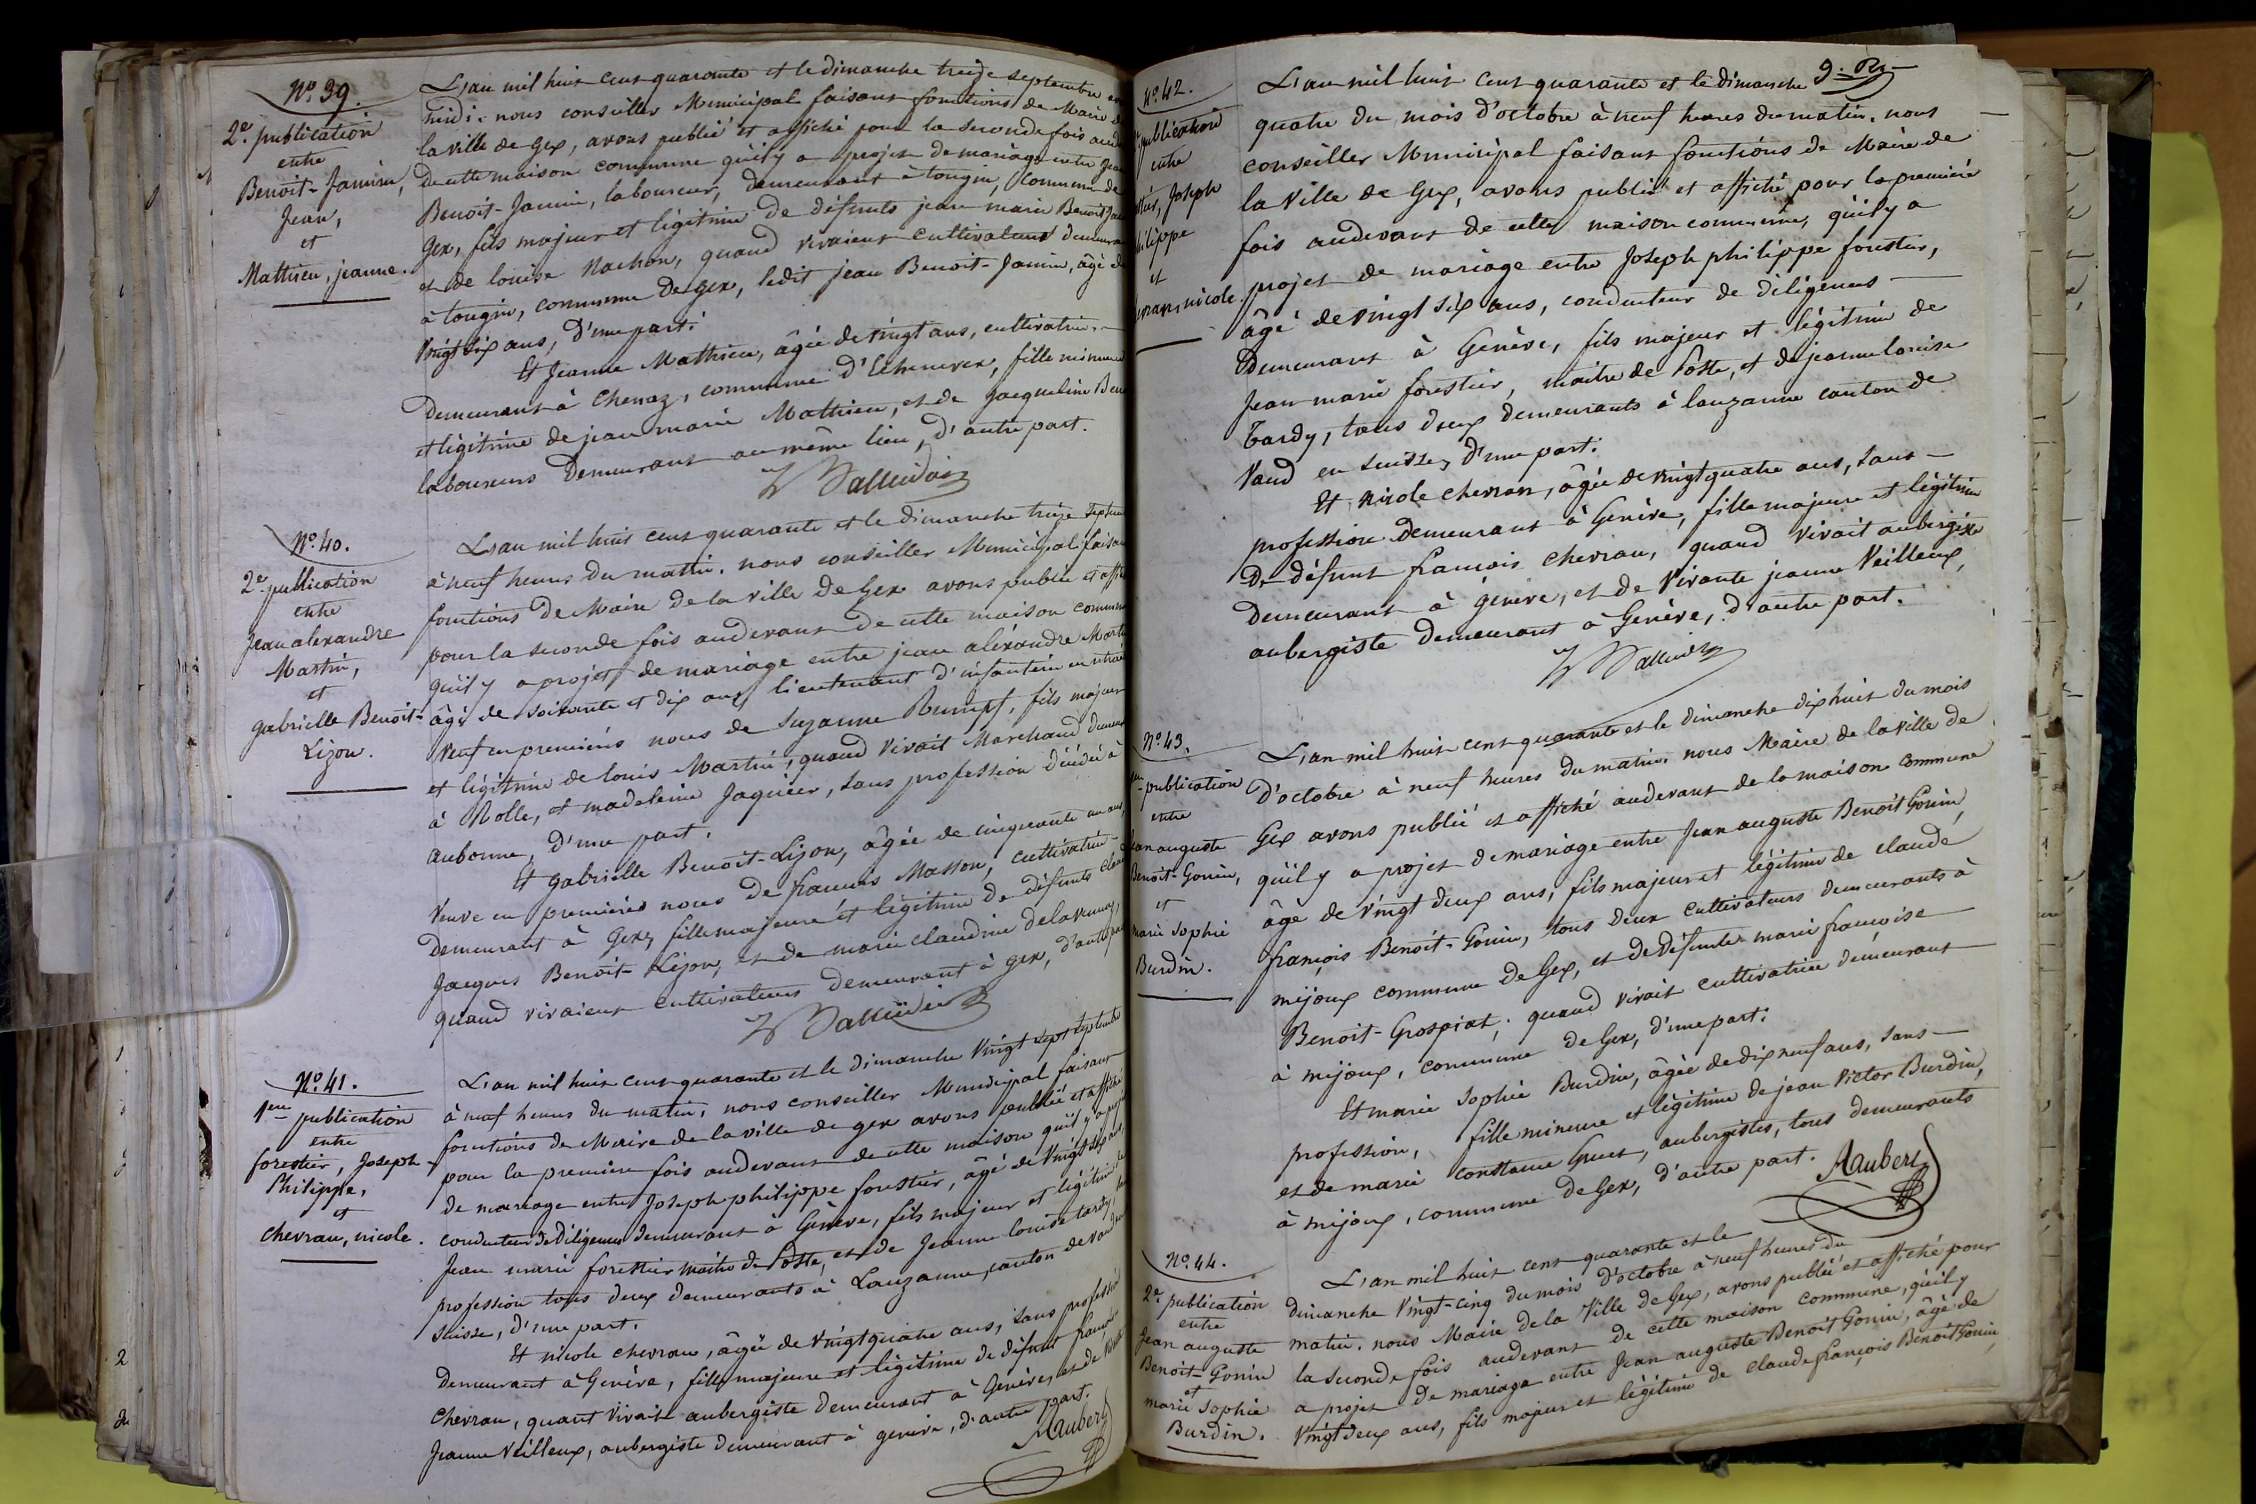 N.º 39.
2.e publication
entre
Benoit-Jamin,
Jean,
et
Mathieu, jeanne.
L'an mil huit cent quarante et le dimanche treize septembre
midi. nous conseiller Municipal faisant fonctions de Maire de
la ville de Gex, avons publié et affiché pour la seconde fois
de cette maison commune qu'il y a projet de mariage entre
Benoit-Jamin, laboureur, demeurant à tougin, commune de
Gex, fils majeur et légitime de défunts jean marie Benoit
et de louise Nachon, quand vivaient cultivateurs
à tougin, commune de gex, ledit jean Benoit-Jamin, âgé de
vingt six ans, d'une part.
Et Jeanne Mathieu, âgée de vingt ans, cultivatrice,
demeurant à Chenaz, commune d'Echenevex, fille mineure
et légitime de jean marie Mathieu, et de Jacqueline
laboureurs demeurant au même lieu, d'autre part.
N.º 40.
2.e publication
entre
Jean alexandre
Martin,
et
gabrielle Benoit-
Lizon.
L'an mil huit cent quarante et le dimanche treize
à neuf heures du matin. nous conseiller Municipal
fonctions de Maire de la ville de Gex avons publié et
pour la seconde fois audevant de cette maison commune
qu'il y a projet de mariage entre jean alexandre
âgé de soixante et dix ans lieutenant d'infanterie
veuf en premières noces de Suzanne Rumpf, fils majeur
et légitime de louis Martin, quand vivait Marchand
à Rolle, et madeleine Jaquier, sans profession décédée à
aubonne, d'une part.
Et gabrielle Benoit-Lizon, âgée de cinquante
veuve en premières noces de françois Masson, cultivatrice
demeurant à Gex, fille majeure et légitime de défunts
Jacques Benoit-Lizon, et de marie claudine
quand vivaient cultivateurs demeurant à gex,
N.º 41.
1.ere publication
entre
forestier, Joseph-
Philippe,
et
chevran, nicole.
L'an mil huit cent quarante et le dimanche vingt sept septembre
à neuf heures du matin, nous conseiller Municipal faisant
fonctions de Maire de la ville de gex avons publié et affiché
pour la première fois audevant de cette maison qu'il y a
de mariage entre Joseph philippe forestier, âgé de vingt six ans,
conducteur de diligences demeurant à Genève, fils majeur et légitime
Jean marie forestier maître de Poste, et de Jeanne louise tardy,
profession tous deux demeurants à Lauzanne, canton de vaud
suisse, d'une part.
Et nicole chevran, âgée de vingt quatre ans, sans profession
demeurant à Genève, fille majeure et légitime de défunt
chevran, quant vivait aubergiste demeurant à Genève, et de
Jeanne Veilleux, aubergiste demeurant à genève, d'autre part.
Aubert
9.
N.º 42.
publication
entre
Joseph
et
nicole.
L'an mil huit cent quarante et le dimanche
quatre du mois d'octobre à neuf heures du matin. nous
conseiller Municipal faisant fonctions de Maire de
la Ville de Gex, avons publié et affiché pour la première
fois audevant de cette maison commune, qu'il y a
projet de mariage entre Joseph philippe forestier,
âgé de vingt six ans, conducteur de diligences
demeurant à Genève, fils majeur et légitime de
Jean marie forestier, maître de Poste, et de jeanne louise
Tardy, tous deux demeurants à lauzanne canton de
Vaud en suisse, d'une part.
Et Nicole chevran, âgée de vingt quatre ans, sans
profession demeurant à Genève, fille majeure et légitime
De défunt francois chevran, quand vivait aubergiste
demeurant à genève, et de vivante jeanne Veilleux,
aubergiste demeurant à Genève, d'autre part.
N.º 43.
publication
entre
jean auguste
Benoit-Gonin,
et
marie Sophie
Burdin.
L'an mil huit cent quarante et le dimanche dix huit du mois
d'octobre à neuf heures du matin nous Maire de la ville de
Gex avons publié et affiché audevant de la maison commune
qu'il y a projet de mariage entre Jean auguste Benoit Gonin,
âgé de vingt deux ans, fils majeur et légitime de claude
françois Benoit-Gonin, tous deux cultivateurs demeurants à
mijoux commune de Gex, et de défunte marie françoise
Benoit-Grospiat, quand vivait cultivatrice demeurant
à mijoux, commune de Gex, d'une part.
Et marie Sophie Burdin, âgée de dix neuf ans, sans
profession, fille mineure et légitime de jean Victor Burdin,
et de marie constance aubergistes, tous demeurants
à mijoux, commune de Gex, d'autre part.
Aubert
N.º 44.
2.e publication
entre
Jean auguste
Benoit-Gonin
et
marie Sophie
Burdin.
L'an mil huit cent quarante et le
dimanche vingt-cinq du mois d'octobre à neuf heures du
matin. nous Maire de la Ville de Gex, avons publié et affiché pour
la seconde fois audevant de cette maison commune, qu'il y
a projet de mariage entre Jean auguste Benoit Gonin, âgé de
vingt deux ans, fils majeur et légitime de claude françois Benoit Gonin